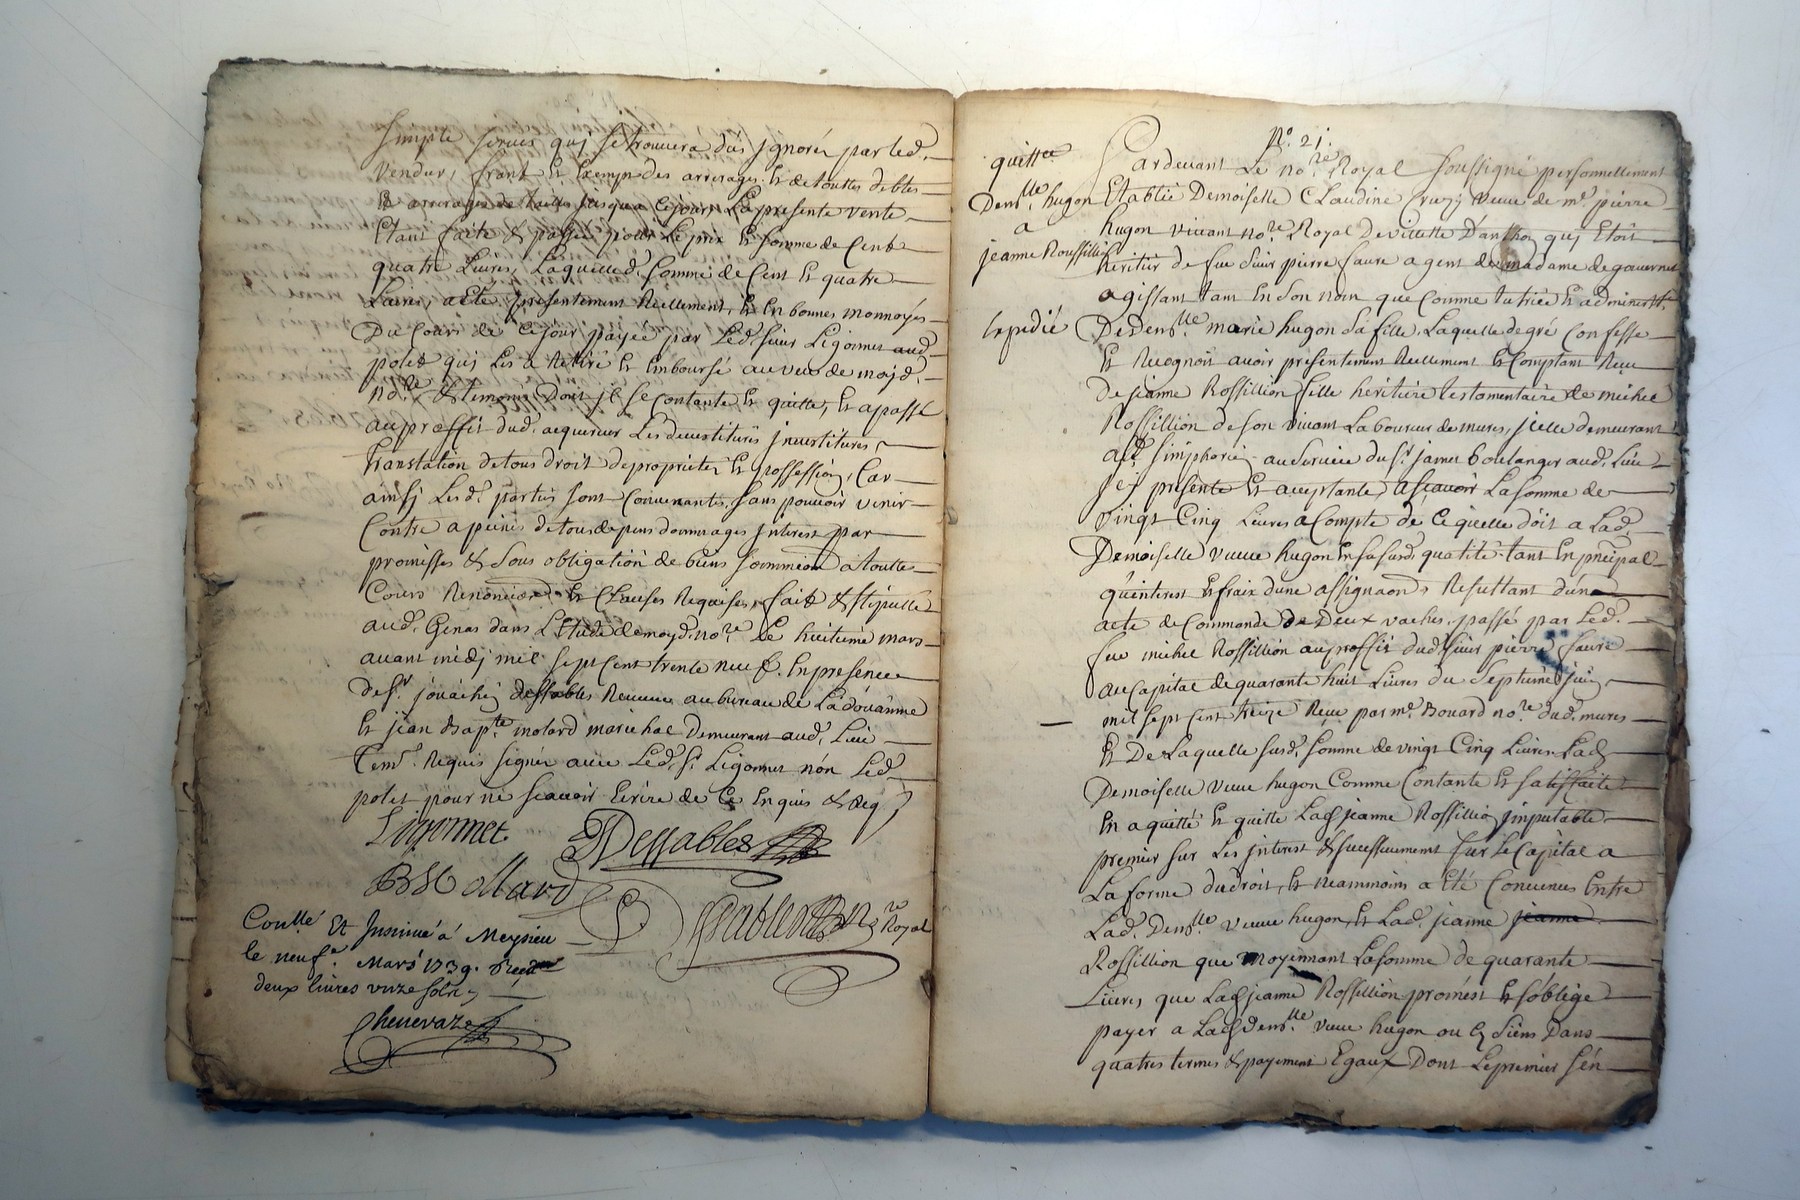 simple servis quj se trouvera dus jgnorés par led.
vendur, franc Et Exempt des arrerages Et de touttes debtes
Et arrerages de tailles jusqua cejour, La presente vente
Etant faite & passée pour Le prix Et somme de Cent
quatre Livres, Laquelle d. somme de Cent Et quatre
Livres, a Eté presentement Reellement, Et En bonnes monnoyes
Du Cours de cejour payée par Led. sieur Ligonnet aud.
polet quj Les a Retiré Et Emboursé au veu de moyd.
no.re & temoins Dont jl se contante Et quitte, Et a passé
au proffit dud. acquereur Les devestitures jnvestitures,
translation de tous droit de proprieté Et possession, Car
ainsj Lesd. parties sont Convenantes, sans pouvoir venir
Contre a peine de tous depens dommages jnterest par
promisses & sous obligation de biens a toutte
Cours Renoncia Et Clauses Requises, fait & stipullé
aud. Genas dans L'Etude de moyd. no.re Le huitieme mars
avant midj mil sept Cent trente neuf. En presence
de s.r joachin dessables Receveur au bureau de La doüanne
Et jean Bap.te molard marechal demeurant aud. Lieu
tem. Requis signés avec Led. s.r Ligonnet non Led.
polet pour ne scavoir Ecrire de Ce Enquis & Req.
Ligonnet. Dessables
B Mollard
N.re Royal
Con.llé Et Insinué à Meysieu
le neuf.e Mars 1739. Reçu
deux livres unze sols
Chenevaz
N.o 21.
quitt.ce
Dem.lle hugon
a
jeanne Roussillion
Expedié
Pardevant Le no.re Royal soussigné personnellement
Etablie Demoiselle Claudine Cruzy veuve de m.e pierre
hugon vivant no.re Royal De villette D'anthon quj Etoit
heritier de feu sieur pierre faure agent de madame de gouvernet
agissant tant En son nom que Comme tutrice Et administ.
De dem.lle marie hugon sa fille, Laquelle de gré Confesse
Et Recognoit avoir presentement Reellement Et Comptant Receu
de jeanne Rossillion fille heritiere testamentaire de michel
Rossillion de son vivant Laboureur de mures, jcelle demeurant
a s.t simphorien au service du s.r james boulanger aud. Lieu
jcy presente Et acceptante, ascavoir La somme de
vingt Cinq Livres a Compte de Ce quelle doit a Lad.
Demoiselle veuve hugon En sa susd. qualité tant En principal
qu'interest Et fraix dune assignaon, Resultant dun
acte de Commande de Deux vaches passé par Led.
feu michel Rossillion au proffit dud. sieur pierre faure
au Capital de quarante huit Livres du septieme juin
mil sept Cent treize Receu par m.e Bouard no.re dud. mures
Et De Laquelle susd. somme de vingt Cinq Livres Lad.
Demoiselle veuve hugon Comme Contante Et satisfaite
En a quitté Et quitte Lad. jeanne Rossillion jmputable
premier sur Les jnterest & successivement sur Le Capital a
La forme du droit, Et neammoins a Eté Convenu Entre
Lad. Dem.lle veuve hugon, Et Lad. jeanne jeanne
Rossillion que moyennant La somme de quarante
Livres que Lad. jeanne Rossillion promest Et s'oblige
payer a Lad. dem.lle veuve hugon ou Es siens Dans
quatres termes & payement Egaux Dont Le premier sen